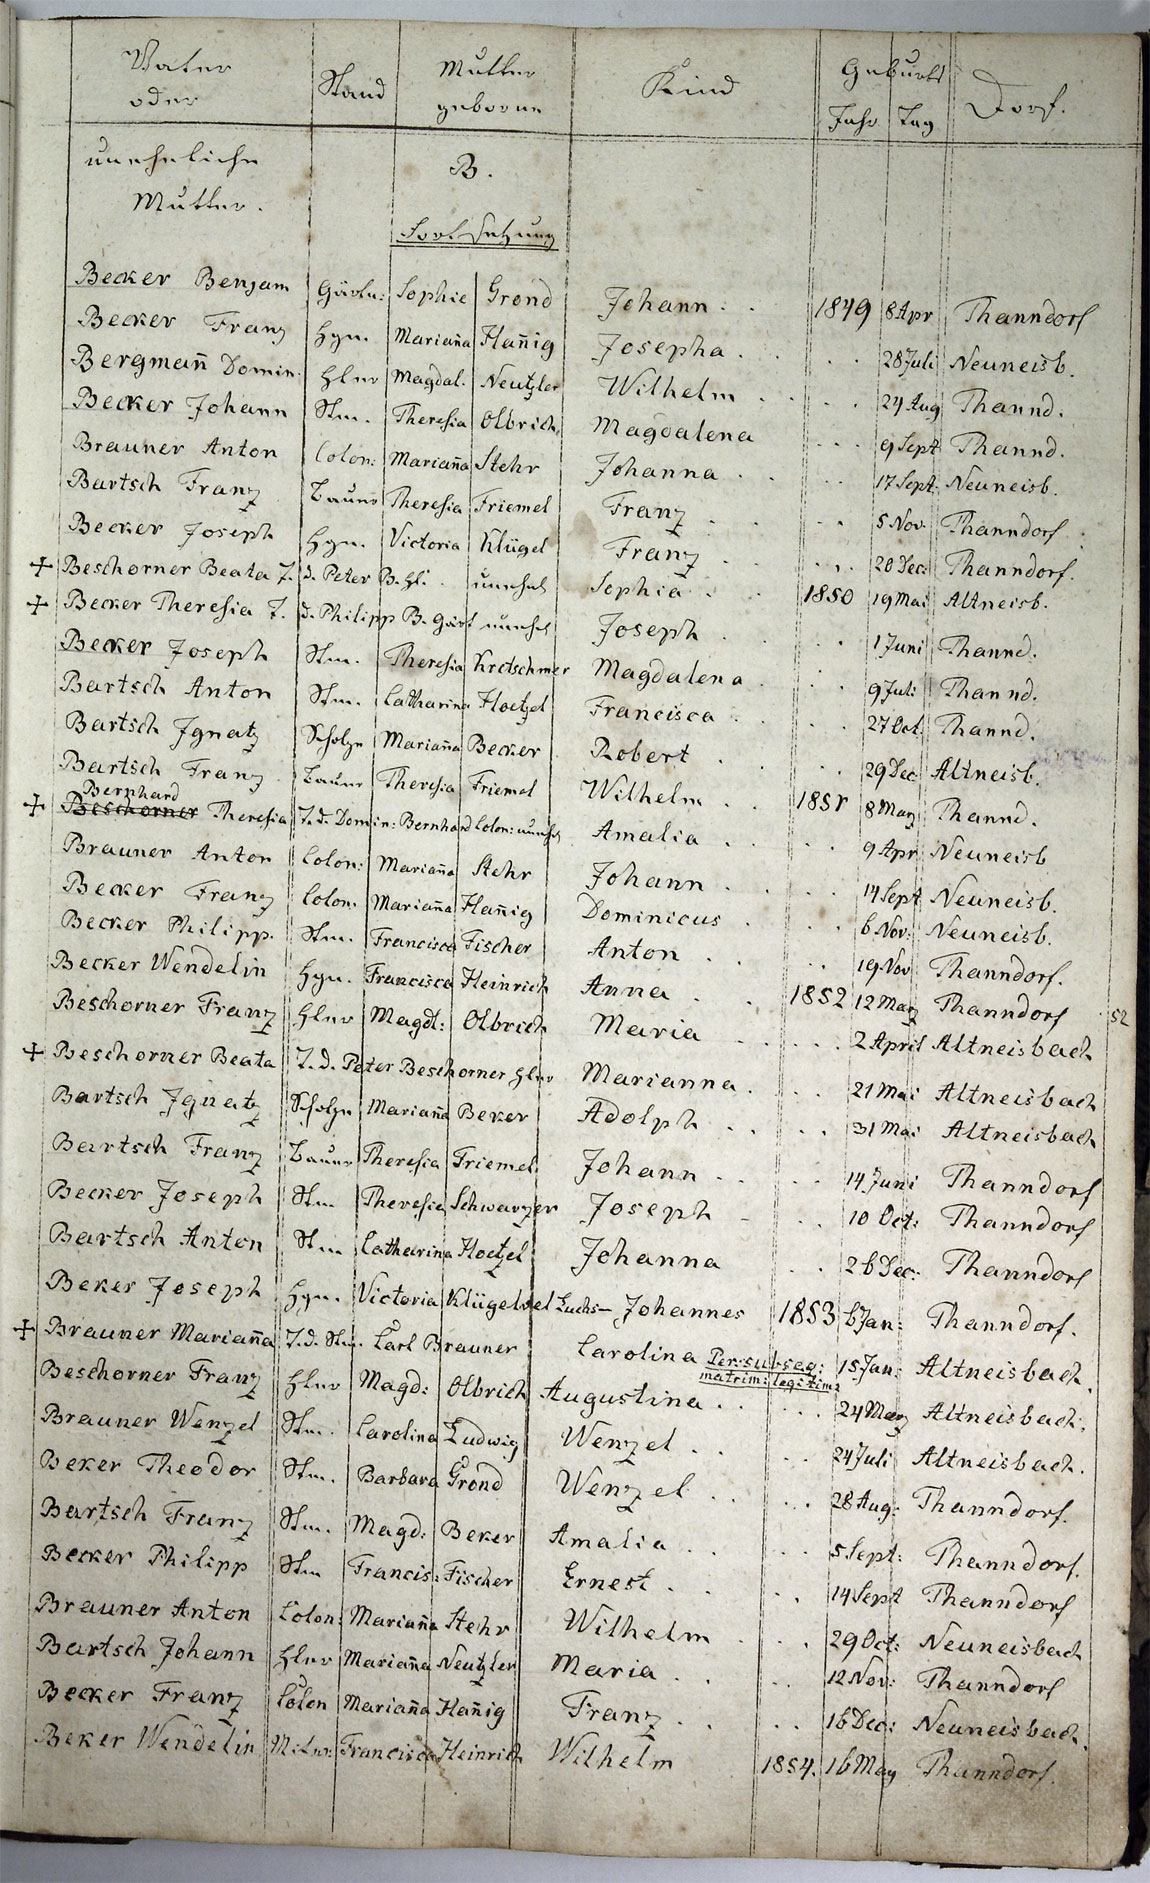 Vater Stand Mutter Kind Geburts Dorf.
oder geborne Jahr Tag
uneheliche B.
Mutter.
Fortsetzung
Becker Benjam Gärtn: Sophie Grond Johann . . 1849 8 Apr Thanndorf
Becker Franz Hgn. Mariana Hañig Josepha . . . . 28 Juli Neuneisb.
Bergmañ Domin. Hslr Magdal. Neutzler Wilhelm . . . . 24 Aug Thannd.
Becker Johann Stm. Theresia Olbrich Magdalena . . . 9 Sept Thannd.
Brauner Anton Colon: Mariaña Stehr Johanna . . . . 17 Sept. Neuneisb.
Bartsch Franz Bauer Theresia Friemel Franz . . . . 5 Nov. Thanndorf
Becker Joseph Hgn. Victoria Klügel Franz . . . . 20 Dec: Thanndorf.
+ Beschorner Beata T. d. Peter B. Hl. unehel Sophia . . 1850 19 Mai Altneisb.
+ Becker Theresia T. d. Philipp B. Gärt unehel Joseph . . . 1 Juni Thannd.
Becker Joseph Stm. Theresia Kretschmer Magdalena . . . 9 Juli Thannd.
Bartsch Anton Stm. Catharina Hoetzel Francisca . . . 27 Oct. Thannd.
Bartsch Ignatz Scholze Mariaña Becker Robert . . . 29 Dec Altneisb.
Bartsch Franz Bauer Theresia Friemel Wilhelm . . 1851 8 Marz Thannd.
Bernhard
+ Beschorner Theresia T. d. Domin: Bernhard Colon: unehel Amalia . . . . 9 Apr Neuneisb
Brauner Anton Colon: Mariaña Stehr Johann . . . . 14 Sept Neuneisb.
Becker Franz Colon: Mariaña Hañig Dominicus . . . 6 Nov: Neuneisb.
Becker Philipp. Stm. Francisca Fischer Anton . . . . 19 Nov Thanndorf.
Becker Wendelin Hgn. Francisca Heinrich Anna . . 1852 12 Marz Thanndorf 52
Beschorner Franz Hslr Magdl: Olbrich Maria . . . . . 2 April Altneisbach
+ Beschorner Beata T. d. Peter Beschorner Hslr Marianna . . . . 21 Mai Altneisbach
Bartsch Ignatz Scholze Mariaña Beker Adolph . . . . 31 Mai Altneisbach
Bartsch Franz Bauer Theresia Friemel Johann . . . . 14 Juni Thanndorf
Becker Joseph Stm. Theresia Schwarzer Joseph . . . 10 Oct: Thanndorf
Bartsch Anton Stm. Catharina Hoetzel Johanna . . 26 Dec: Thanndorf
Beker Joseph Hgn. Victoria Klügel vel Luchs- Johannes 1853 6 Jan: Thanndorf.
+ Brauner Mariaña T. d. Stm. Carl Brauner Carolina Per: subseq: 15 Jan: Altneisbach.
matrim: legitim:
Beschorner Franz Hslr Magd: Olbrich Augustina . . . . . 24 Marz Altneisbach.
Brauner Wenzel Stm. Carolina Ludwig Wenzel . . . . 24 Juli Altneisbach.
Beker Theodor Stm. Barbara Grond Wenzel . . . . 28 Aug: Thanndorf.
Bartsch Franz Stm. Magd: Beker Amalia . . . . 5 Sept: Thanndorf.
Becker Philipp Stm Francis: Fischer Ernest . . . . 14 Sept Thanndorf
Brauner Anton Colon: Mariaña Stehr Wilhelm . . . 29 Oct: Neuneisbach
Bartsch Johann Hslr Mariaña Neutzler Maria . . . . 12 Nov: Thanndorf
Becker Franz Colon Mariaña Hañig Franz . . . . 16 Dec: Neuneisbach.
Beker Wendelin Francisca Heinrich Wilhelm 1854. 16 May Thanndorf.